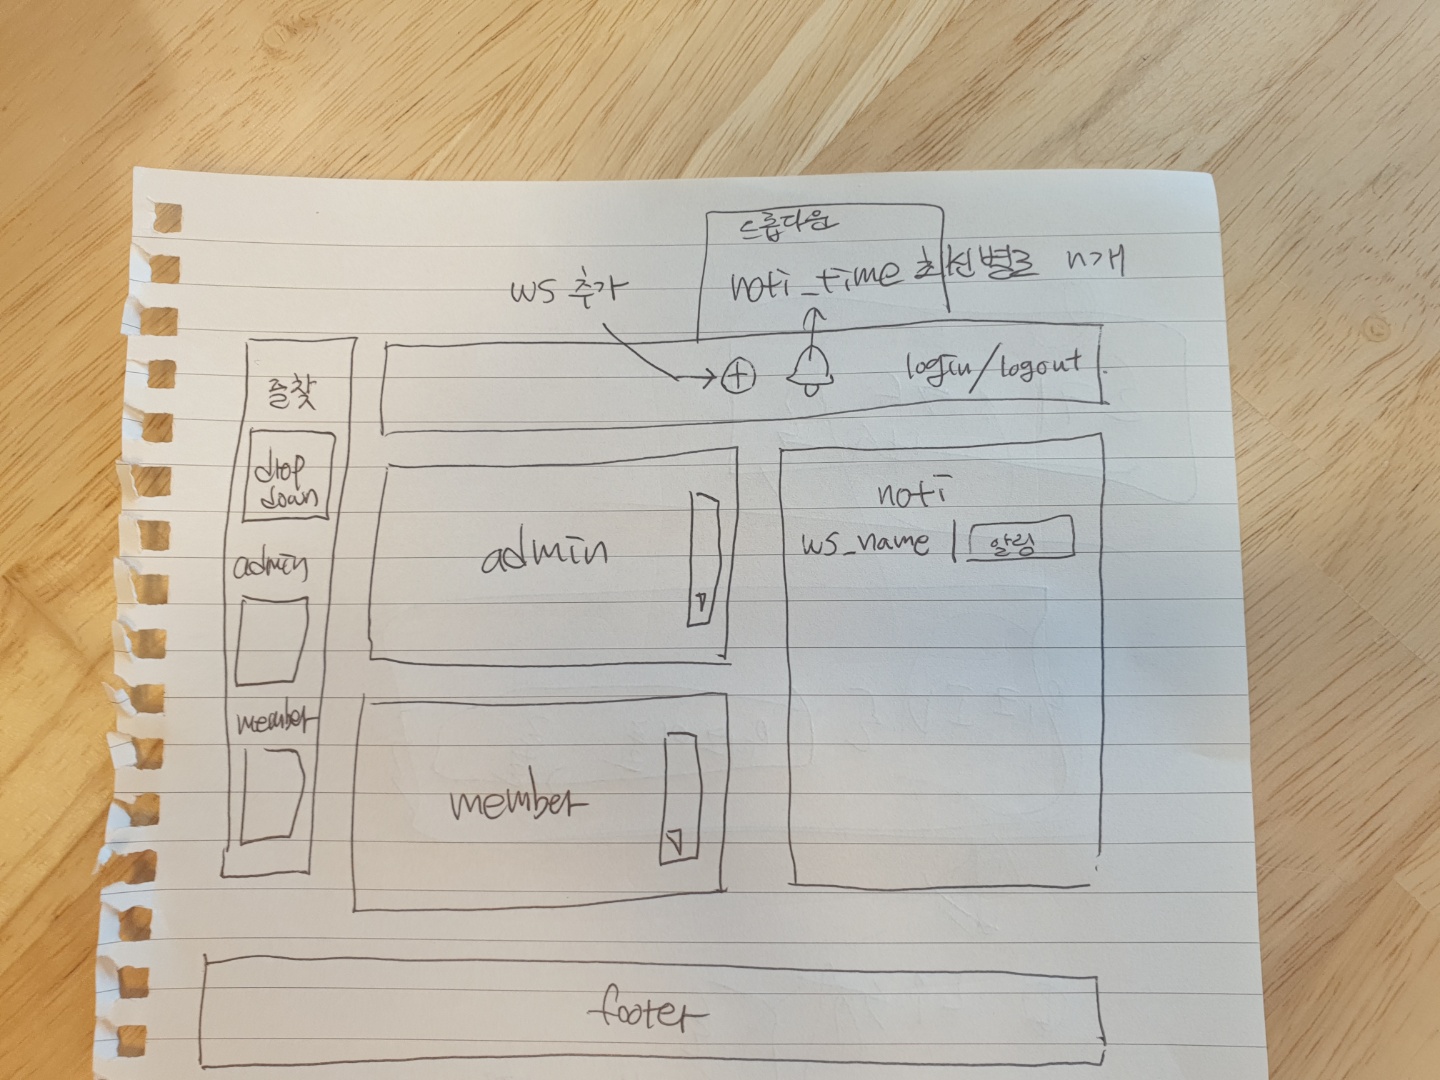 드롭다운
noti_time 최신별로 n개
ws 추가
login/logout
즐찾
drop
down
admin
member
admin
member
noti
ws_name | 알림
footer